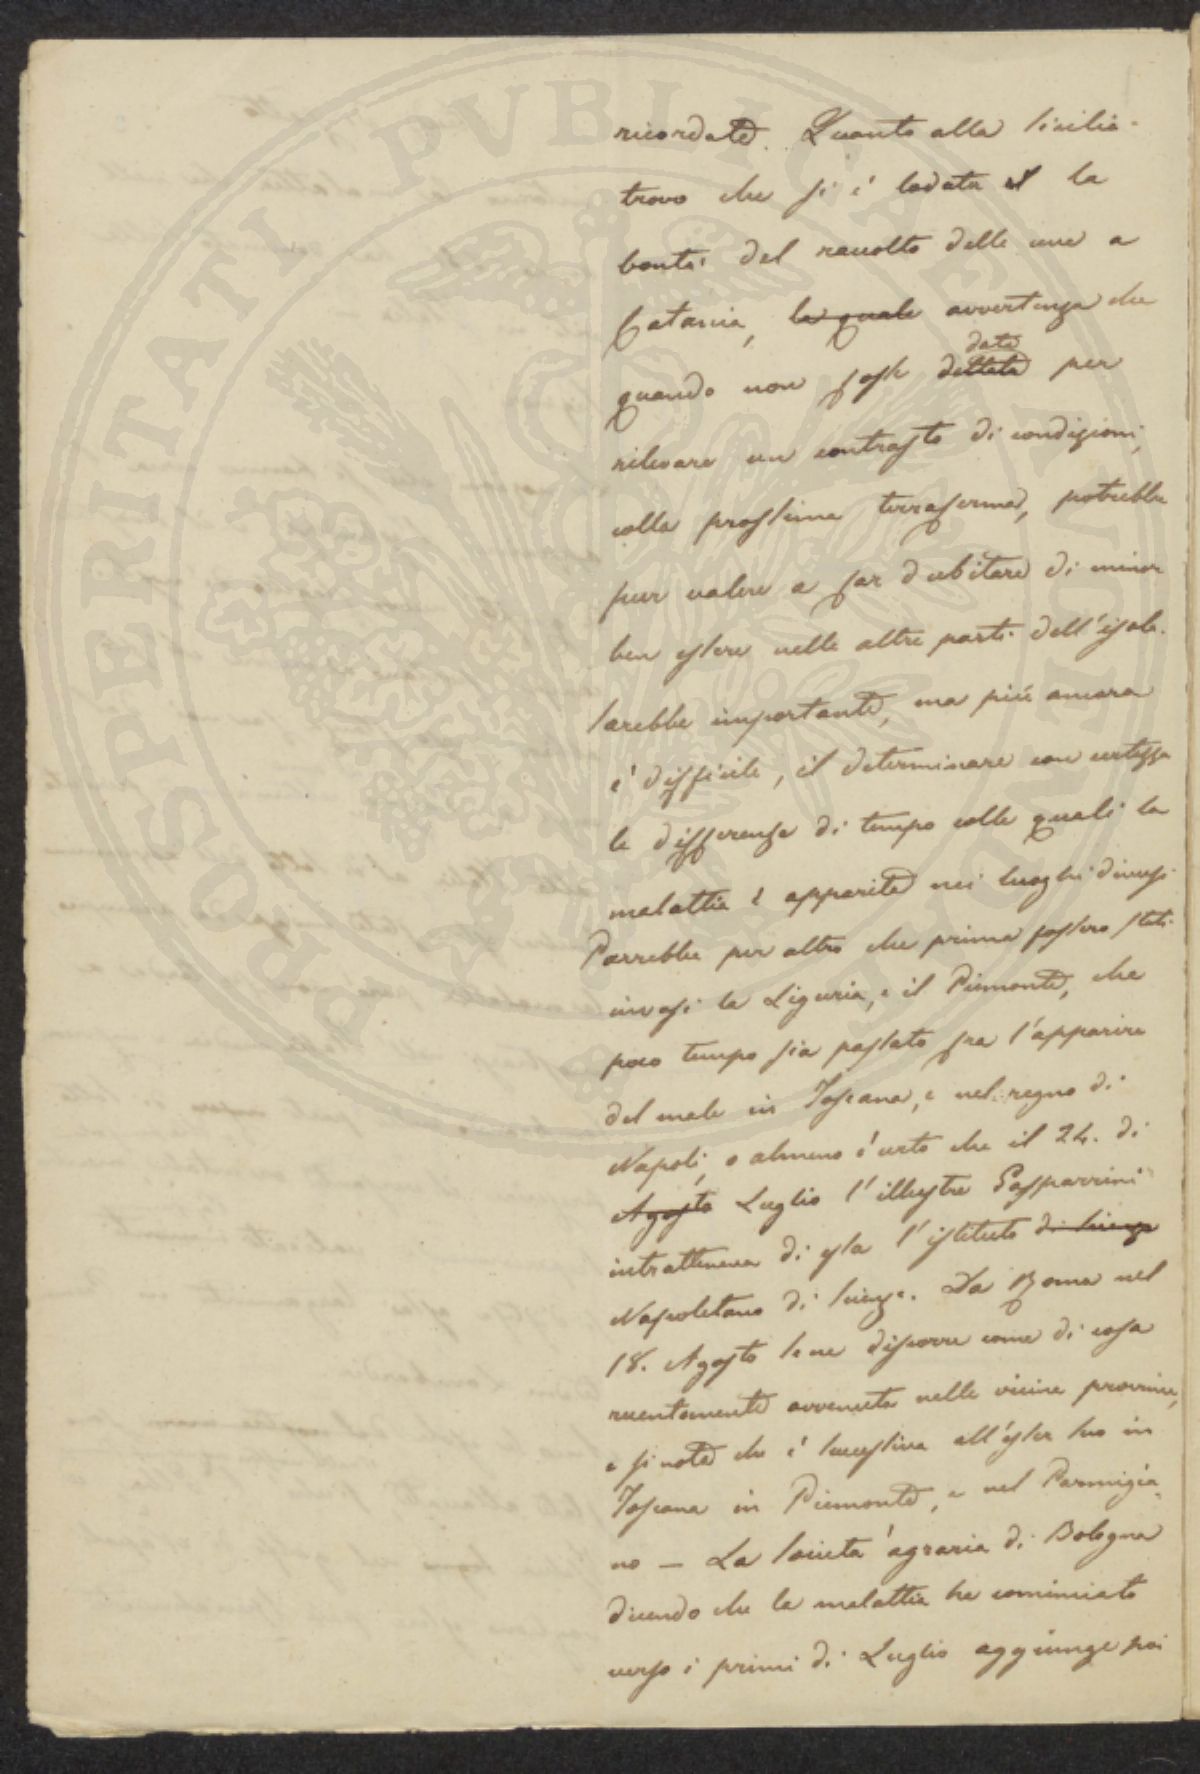 PROSPERITATI PVBLICAE AVGENDAE
ricordate. Quanto alla Sicilia
trovo che si è lodata la
bontà del raccolto delle uve a
Catania, la quale avvertenza che
date
quando non fosse dettata per
rilevare un contrasto di condizioni,
colla prossima terraferma, potrebbe
pur valere a far dubitare di minor
ben essere nelle altre parti dell'isola.
Sarebbe importante, ma più ancora
è difficile, il determinare con certezza
le differenze di tempo colle quali la
malattia è apparita nei luoghi diversi
Parrebbe per altro che prima fossero stati
invasi la Liguria, e il Piemonte, che
poco tempo sia passato fra l'apparire
del male in Toscana, e nel regno di
Napoli, o almeno è certo che il 24. di
Agosto Luglio l'illustre Gasparrini
intratteneva di essa l'istituto di scienze
Napoletano di Scienze. Da Roma nel
18. Agosto se ne discorre come di cosa
recentemente avvenuta nelle vicine provincie,
e si nota che è successiva all'esser suo in
Toscana in Piemonte, e nel Parmigia-
no — La Società agraria di Bologna
dicendo che la malattia ha cominciato
verso i primi di Luglio aggiunge poi